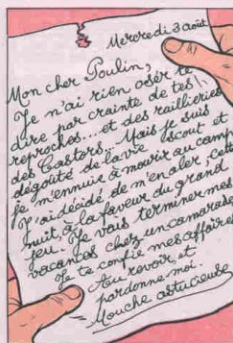 Mercredi 3 août
Mon cher Poulin,
Je n'ai rien osé te
dire par crainte de tes
reproches... et des railleries
des Castors. Mais je suis
dégoûté de la vie scout et
je m'ennuie à mourir au camp
J'ai décidé de m'en aler, cette
nuit à la faveur du grand
jeu. Je vais terminer mes
vacances chez un camarase,
Je te confie mes affaires
Au revoir, et
pardonne moi.
Mouche astucieuse